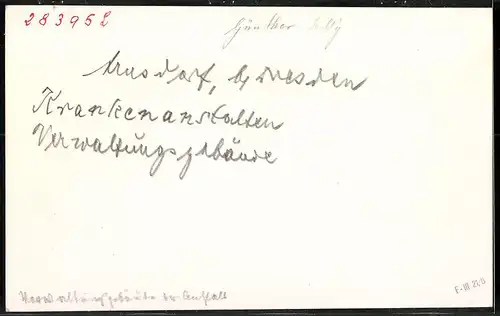 283952
Günther Willy
Arnsdorf, b/ Dresden
Krankenanstalten
Verwaltungsgebäude
Verwaltungsgebäude der Anstalt